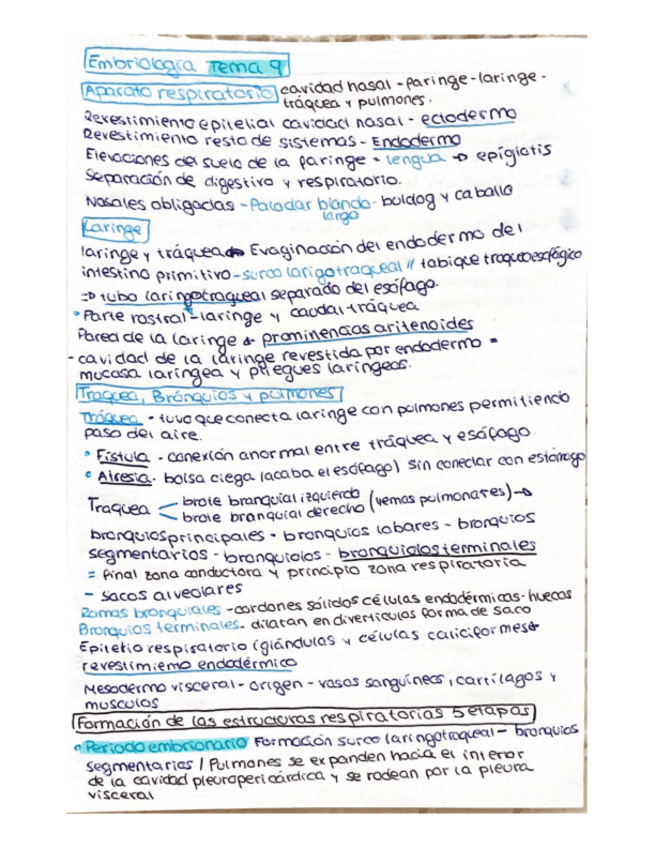 Embriología Tema 9
Aparato respiratorio cavidad nasal - faringe - laringe -
tráquea y pulmones.
Revestimiento epitelial cavidad nasal - ectodermo
Revestimiento resto de sistemas - Endodermo
Elevaciones del suelo de la faringe - lengua → epiglotis
Separación de digestivo y respiratorio.
Nasales obligados - Paladar blando - buldog y caballo
largo
Laringe
laringe y tráquea → Evaginación del endodermo del
intestino primitivo - surco larigotraqueal // tabique traqueoesofágico
=> tubo laringotraqueal separado del esófago.
• Parte rostral - laringe y caudal - tráquea
Pared de la laringe → prominencias aritenoides
- cavidad de la laringe revestida por endodermo =
mucosa laríngea y pliegues laríngeos.
Traquea, Brónquios y pulmones
Tráquea - tuvo que conecta laringe con pulmones permitiendo
paso del aire.
• Fístula - conexión anormal entre tráquea y esófago
• Atresia - bolsa ciega (acaba el esófago) sin conectar con estómago
Traquea < brote branquial izquierdo
brote branquial derecho (yemas pulmonares) →
bronquios principales - bronquios lobares - bronquios
segmentarios - bronquiolos - bronquiolos terminales
= final zona conductora y principio zona respiratoria
- sacos alveolares
Ramas bronquiales - cordones sólidos células endodérmicas - huecos
Bronquios terminales - dilatan en divertículos forma de saco
Epitelio respiratorio (glándulas y células caliciformes →
revestimiento endodérmico
Mesodermo visceral - origen - vasos sanguíneos, cartílagos y
músculos
Formación de las estructuras respiratorias 5 etapas
• Periodo embrionario Formación surco laringotraqueal - bronquios
segmentarios / Pulmones se expanden hacia el interior
de la cavidad pleuropericárdica y se rodean por la pleura
visceral